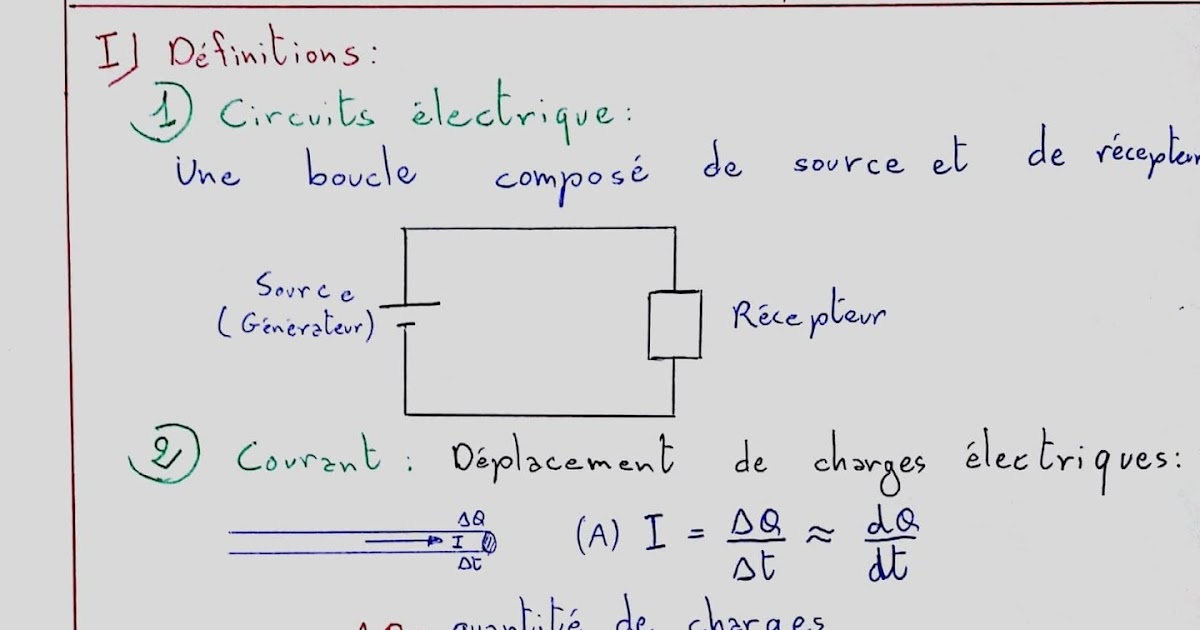 I) Définitions :
1) Circuits électrique :
Une boucle composé de source et de récepteur
Source
(Générateur)
Récepteur
2) Courant : Déplacement de charges électriques :
ΔQ
I
Δt
(A) I = ΔQ/Δt ≈ dQ/dt
ΔQ quantité de charges